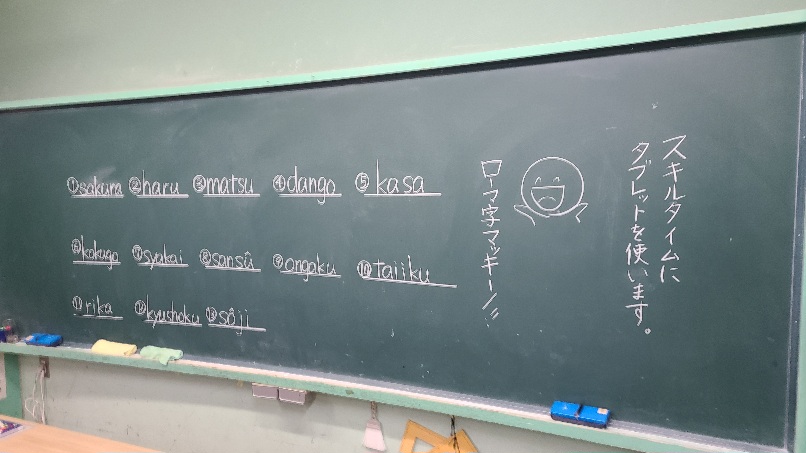 スキルタイムに
タブレットを使います。
ローマ字マッキー!!
①sakura ②haru ③matsu ④dango ⑤kasa
⑥kokugo ⑦syakai ⑧sansû ⑨ongaku ⑩taiiku
⑪rika ⑫kyushoku ⑬sôji